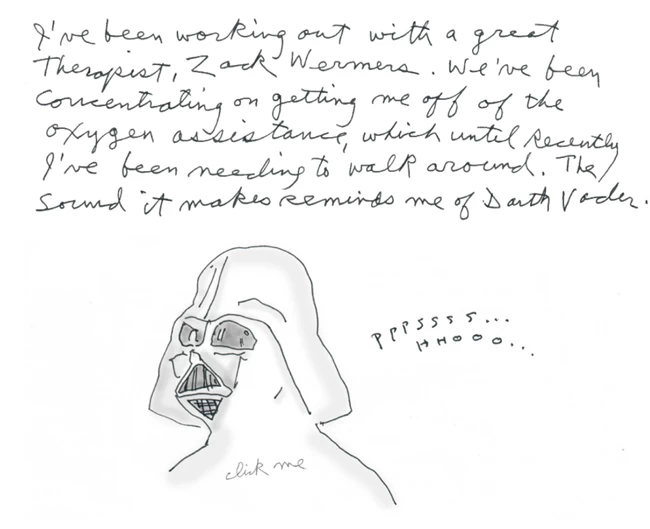 I've been working out with a great
Therapist, Zack Wermers. We've been
concentrating on getting me off of the
oxygen assistance, which until recently
I've been needing to walk around. The
sound it makes reminds me of Darth Vader.
PPPSSSS...
HHOOO...
click me